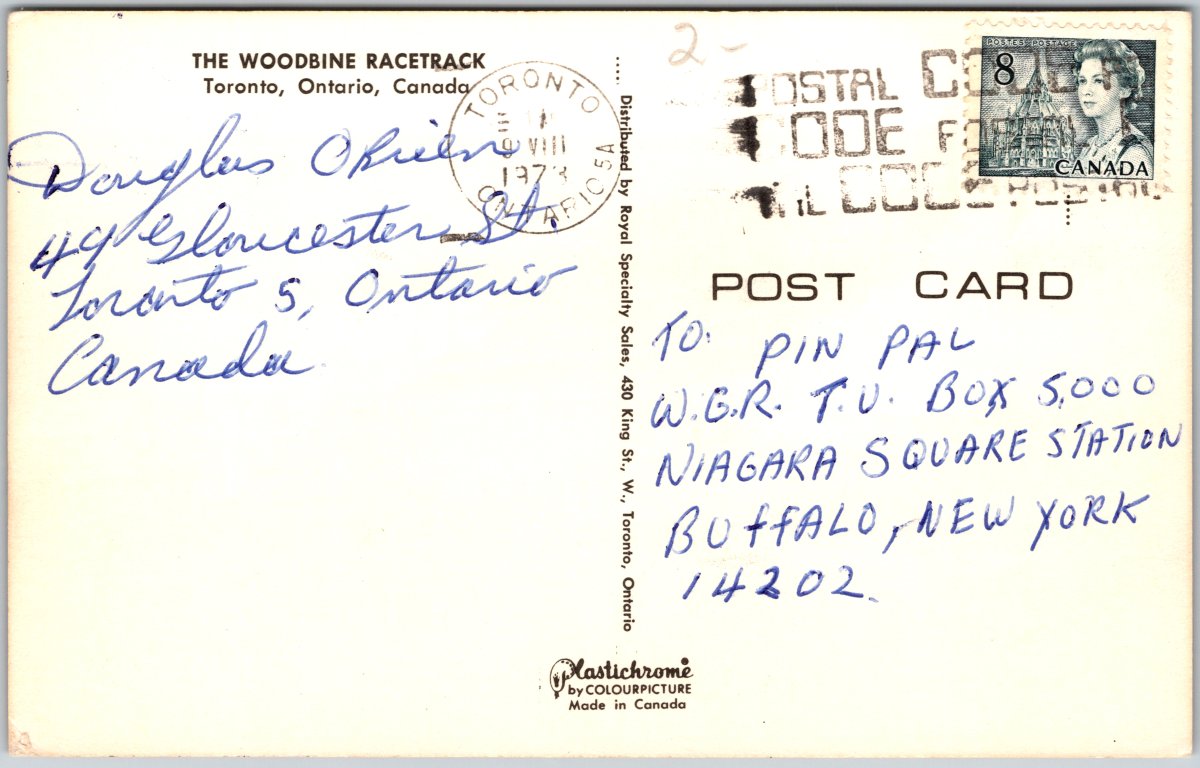 THE WOODBINE RACETRACK
Toronto, Ontario, Canada
Douglas OBrien
49 Gloucester St.
Toronto 5, Ontario
Canada
TORONTO
VIII
1973
ONTARIO 5A
2-
POSTAL
CODE
CODE POSTAL
POSTES POSTAGE
8
CANADA
Distributed by Royal Specialty Sales, 430 King St., W., Toronto, Ontario
POST CARD
TO: PIN PAL
W.G.R. T.V. BOX 5,000
NIAGARA SQUARE STATION
BUFFALO, NEW YORK
14202.
Plastichrome
by COLOURPICTURE
Made in Canada